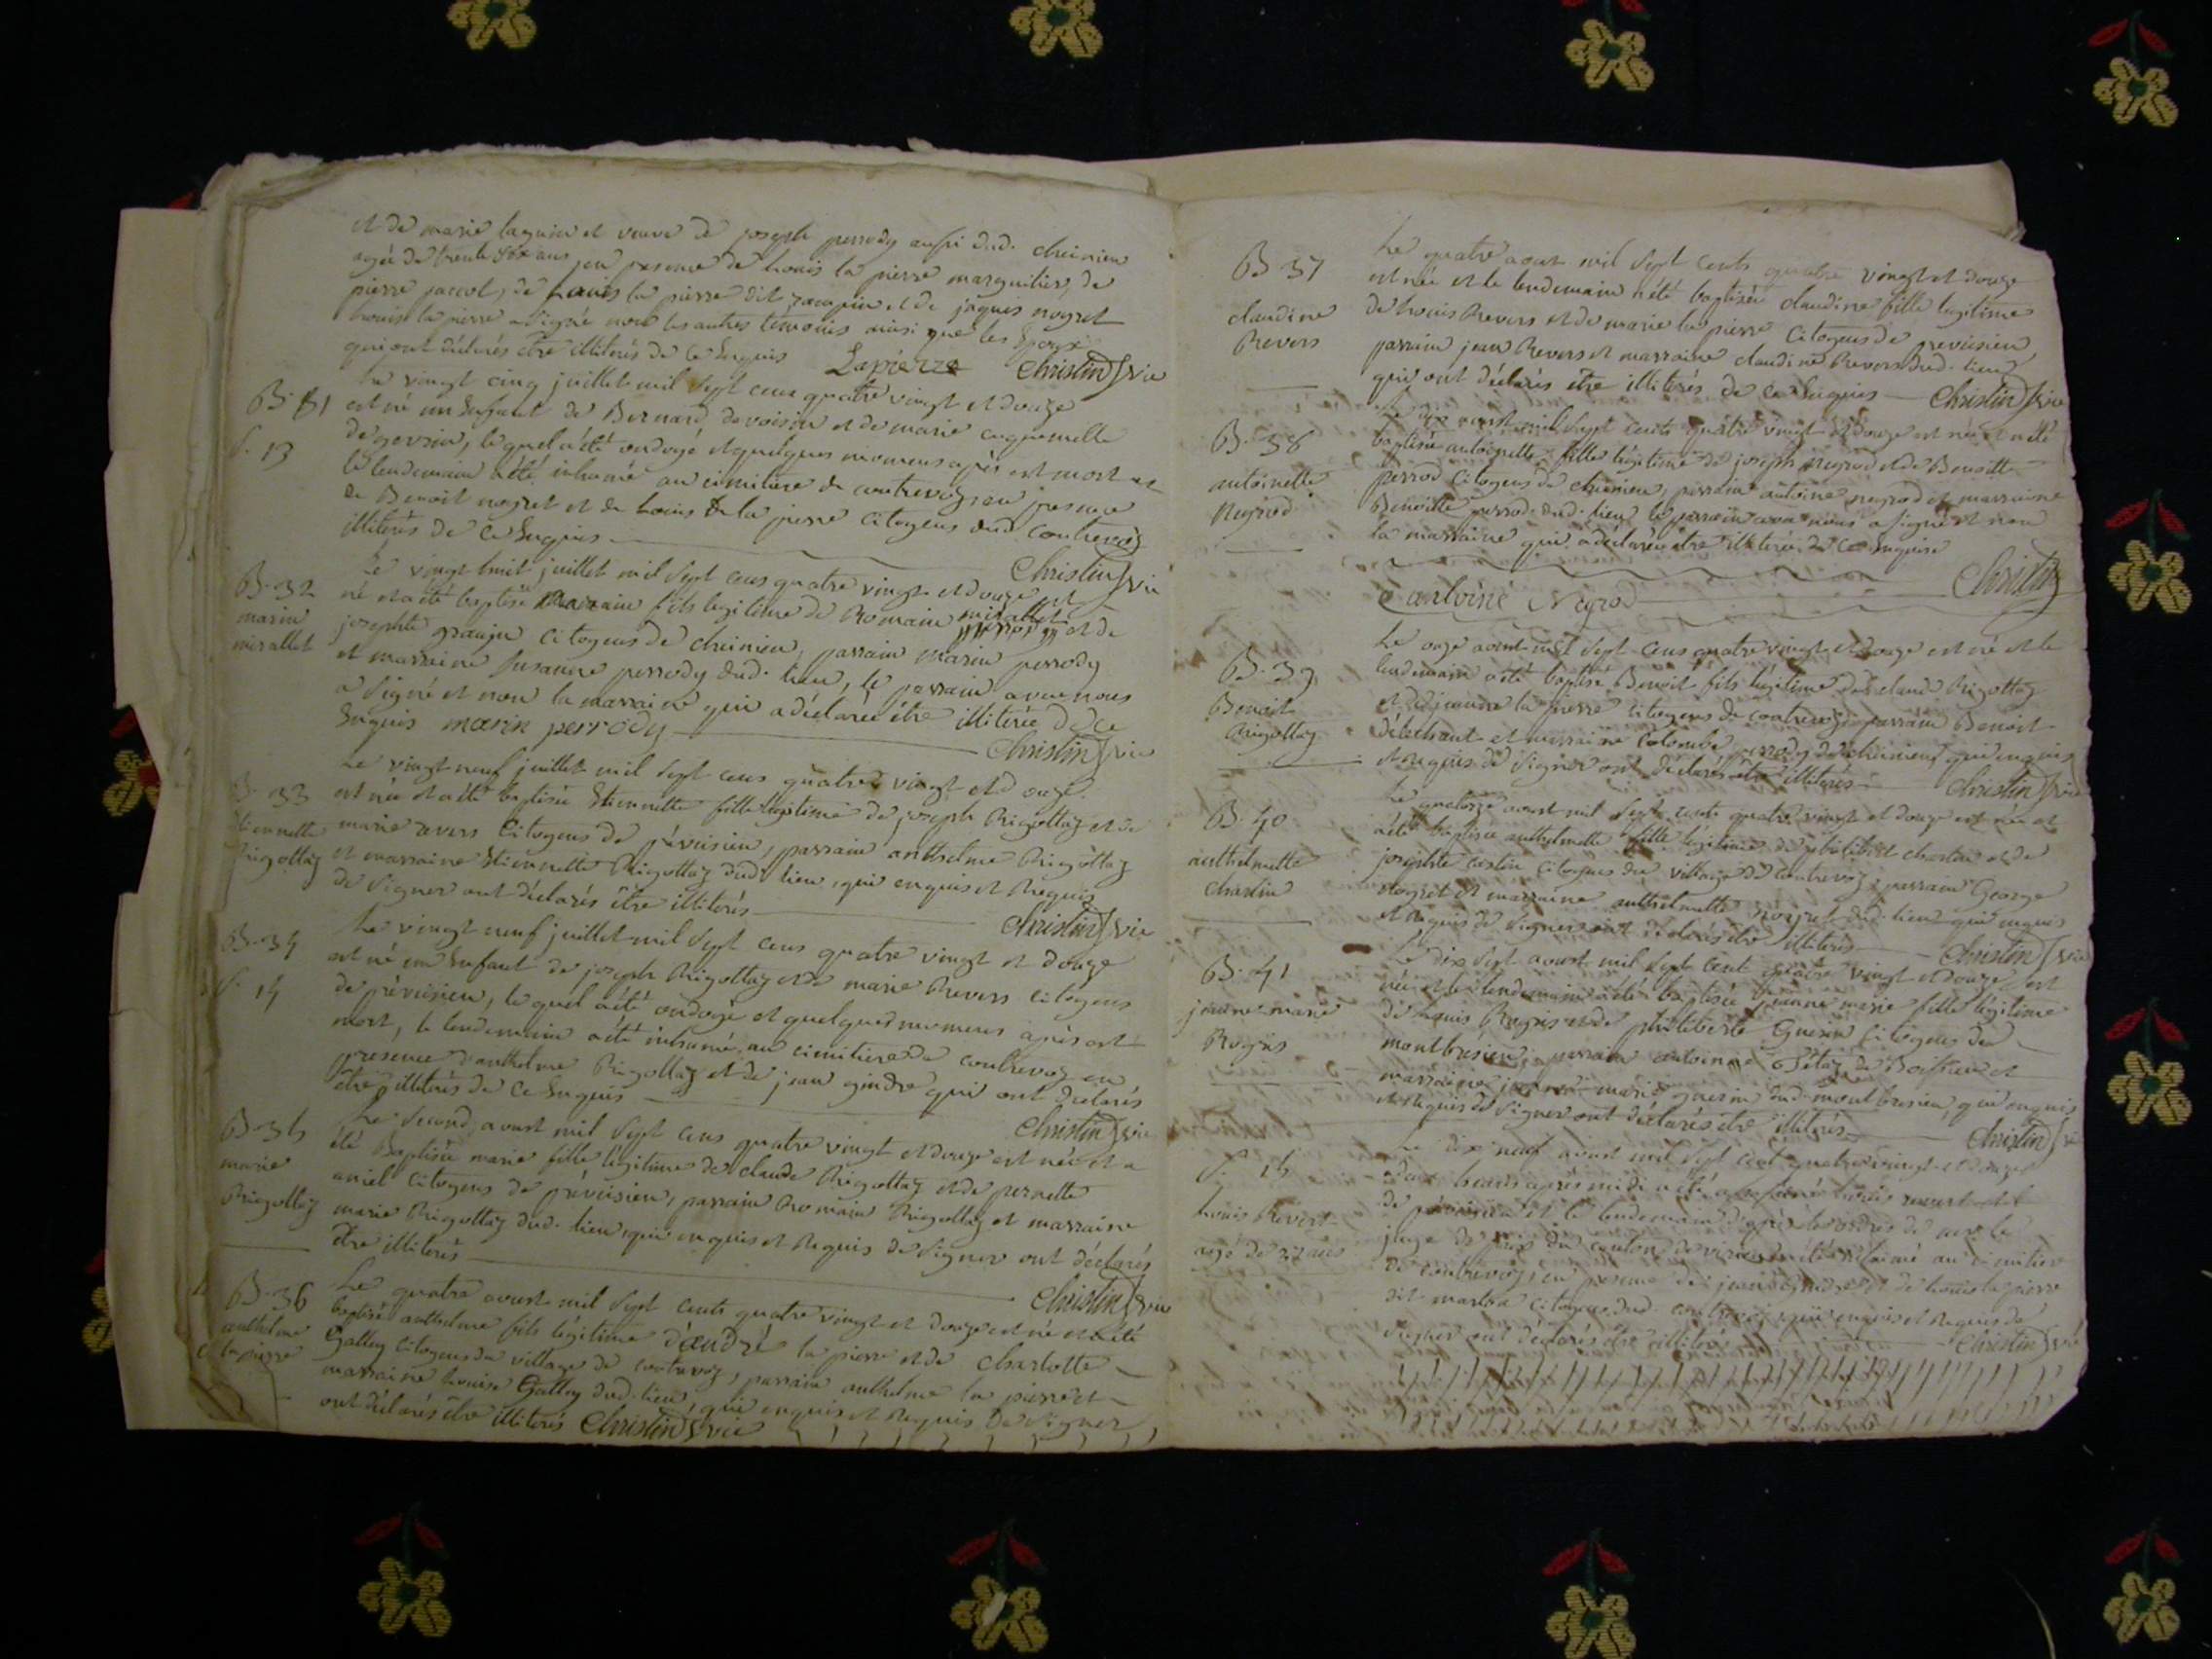 et de marie et veuve de joseph perrody aussi dud. cheinieu
agée de trente six ans en presence de Louis la pierre marguilier, de
pierre jaccot, de Louis la pierre dit et de jaques nogret
Louis la pierre a signé non les autres temoins ainsi que les Epoux
qui ont déclarés être illiterés de ce Enquis Lapierre Christin vic
B. 31
S. 13
Le vingt cinq juillet mil Sept cens quatre vingt et douze
est né un Enfant de Bernard devoisin et de marie
de gevrin, lequel a été ondoyé et quelques momens après est mort et
le lendemain a été inhumé au cimitière de contrevoz en presence
de Benoit nogret et de Louis de la pierre citoyens dud. contrevoz
illiterés de ce Enquis
Christin vic
B. 32
marin
mirallet
Le vingt huit juillet mil Sept cens quatre vingt et douze est
né et a été baptisé fils legitime de Romain mirallet et de
josephte citoyens de cheinieu, parrain marin perrody
et marraine Susanne perrody dud. lieu, le parrain avec nous
a Signé et non la marraine qui a déclarée être illiterée de ce
Enquis marin perrody
Christin vic
B. 33
Etiennette
Rigottaz
Le vingt neuf juillet mil Sept cens quatre vingt et douze
est née et a été baptisée Etiennette fille legitime de joseph Rigottaz et de
marie revers citoyens de préveisieu, parrain anthelme Rigottaz
et marraine Etiennette Rigottaz dud. lieu, qui enquis et Requis
de Signer ont déclarés être illiterés
Christin vic
B. 34
S. 14
Le vingt neuf juillet mil Sept cens quatre vingt et douze
est né un Enfant de joseph Rigottaz et de marie Revers citoyens
de préveisieu, lequel a été ondoyé et quelques momens après est
mort, le lendemain a été inhumé au cimitière de contrevoz en
presence d'anthelme Rigottaz et de jean gindre qui ont declarés
être illiterés de ce Enquis
Christin vic
B. 35
marie
Rigottaz
Le Second aoust mil Sept cens quatre vingt et douze est née et a
été Baptisée marie fille légitime de claude Rigottaz et de pernette
citoyens de préveisieu, parrain Romain Rigottaz et marraine
marie Rigottaz dud. lieu, qui enquis et Requis de Signer ont déclarés
être illiterés
Christin vic
B. 36
anthelme
la pierre
Le quatre aoust mil Sept cents quatre vingt et douze est né et a été
baptisé anthelme fils légitime d'andré la pierre et de charlotte
Galley citoyens du village de contrevoz, parrain anthelme la pierre et
marraine Louise Galley dud. lieu, qui enquis et Requis de Signer
ont déclarés être illiterés Christin vic
B. 37
claudine
Revers
Le quatre aout mil Sept cents quatre vingt et douze
est née et le lendemain a été baptisée claudine fille legitime
de Louis Revers et de marie la pierre citoyens de preveisieu
parrain jean Revers et marraine claudine Revers dud. lieu
qui ont déclarés être illiterés de ce Enquis Christin vic
B. 38
antoinette
Negrod
Le dix aoust mil Sept cents quatre vingt et douze est née et a été
baptisée antoinette fille légitime de joseph negrod et de Benoitte
perrod citoyens de cheinieu, parrain antoine negrod et marraine
Benoitte perrod dud. lieu le parrain avec nous a signé et non
la marraine qui a déclarée être illiterée de ce enquise
Christin
antoine Negrod
B. 39
Benoit
Rigottaz
Le onze aoust mil Sept cens quatre vingt et douze est né et le
lendemain a été baptisé Benoit fils légitime de claude Rigottaz
et de jeanne la pierre citoyens de contrevoz, parrain Benoit
et marraine Colombe perrody de cheinieu qui enquis
et Requis de Signer ont déclarés être illiterés
Christin vic
B. 40
anthelmette
Charlin
Le quatorze aoust mil Sept cents quatre vingt et douze est née et
a été baptisée anthelmette fille légitime de philibert et de
josephte citoyens du village de contrevoz, parrain George
nogret et marraine anthelmette nogret dud. lieu qui enquis
et Requis de Signer ont declarés être illiterés
Christin vic
B. 41
jeanne marie
Le dix Sept aoust mil Sept cent quatre vingt et douze est
née et le lendemain a été baptisée jeanne marie fille légitime
de Louis et de philiberte Guerin citoyens de
montbresieu, parrain antoine de et
marraine jeanne marie guerin dud. montbresieu, que enquis
et Requis de Signer ont déclarés être illiterés
Christin vic
S. 15
Louis Revert
agé de
Le dix neuf aoust mil Sept cent quatre vingt et douze
a deux heures après midi a été Louis revert
de préveisieu et le lendemain d'après les ordres de mr le
juge de paix du canton de virieu a été inhumé au cimitier
de contrevoz, en presence de jean gindre et de Louis la pierre
dit martin citoyens dud. contrevoz qui enquis et Requis de
Signer ont déclarés être illiterés
Christin vic